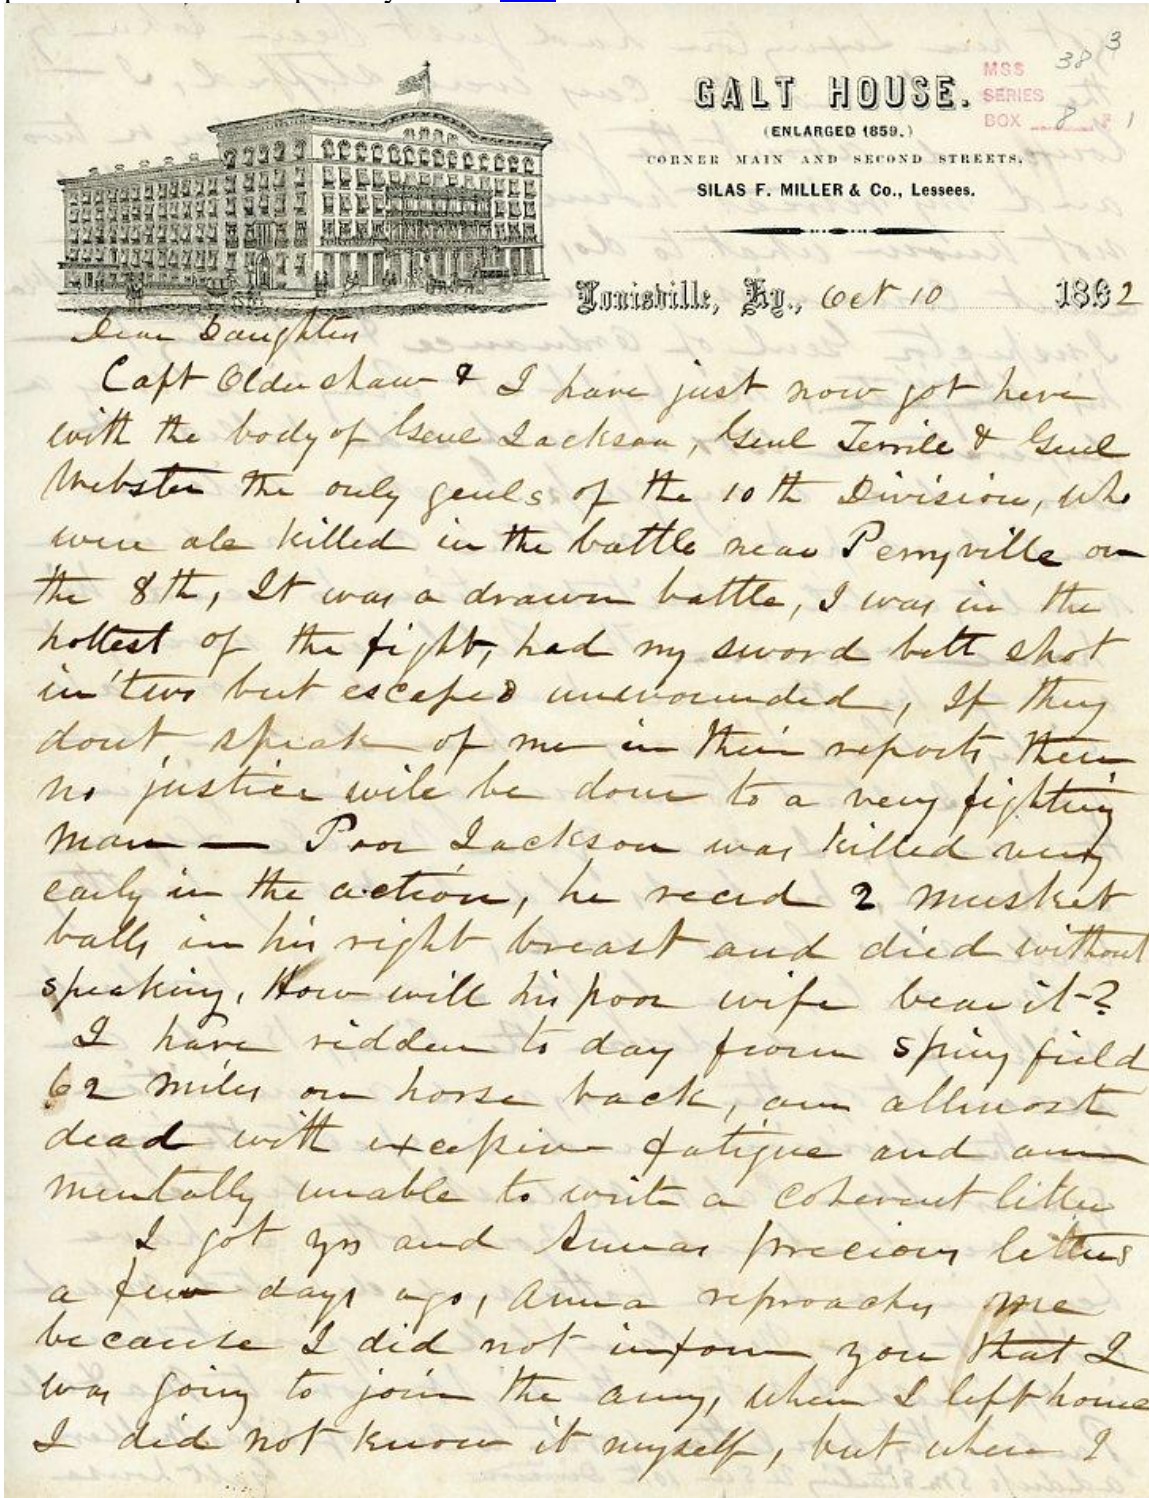 GALT HOUSE.
(ENLARGED 1859.)
CORNER MAIN AND SECOND STREETS,
SILAS F. MILLER & Co., Lessees.
MSS 38 3
SERIES
BOX 8 F 1
Louisville, Ky., Oct 10 1862
Dear Daughter
Capt Oldershaw & I have just now got here
with the body of Genl Jackson, Genl Terrile & Genl
Webster the only genls of the 10th Division, who
were ale killed in the battle near Perryville on
the 8th, It was a drawn battle, I was in the
hottest of the fight, had my sword belt shot
in two but escaped unwounded, If they
dont speak of me in their reports then
no justice wile be done to a very fighting
man — Poor Jackson was killed very
early in the action, he recd 2 musket
balls in his right breast and died without
speaking, How will his poor wife bear it-?
I have ridden to day from Springfield
62 miles on horse back, am allmost
dead with excessive fatigue and am
mentally unable to write a coherent letter
I got yrs and Annas precious letters
a few days ago, Anna reproachs me
because I did not inform you that I
was going to join the army, when I left home
I did not know it myself, but when I